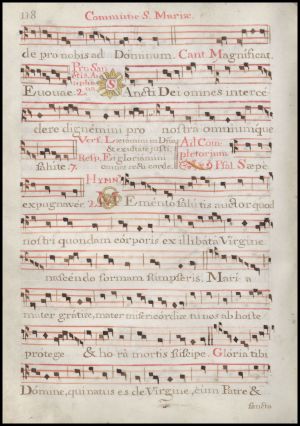 118 Commune S. Mariæ.
de pro nobis ad Dominum. Cant Magnificat.
Euouae. 2. Pro San
Sancti Dei omnes interce
dere dignemini pro nostra omnimque
Vers. Lætamini in Dnō
& exultate justi
Resp. Et gloriamini
omnes recti corde.
Ad Com
pletorium
salute. 7. Psal. Sæpe
Hymn9
expugnaver. 2. Memento salutis auctor quod
nostri quondam corporis ex illibata Virgine
nascendo formam sumpseris. Maria
mater gratiæ, mater misericordiæ tu nos ab hoste
protege & hora mortis suscipe. Gloria tibi
Domine, qui natus es de Virgine, cum Patre &
sancto